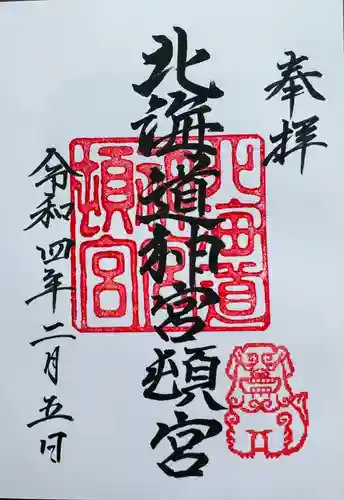 奉拝
北海道神宮頓宮
令和四年二月五日
北海道
神宮
頓宮